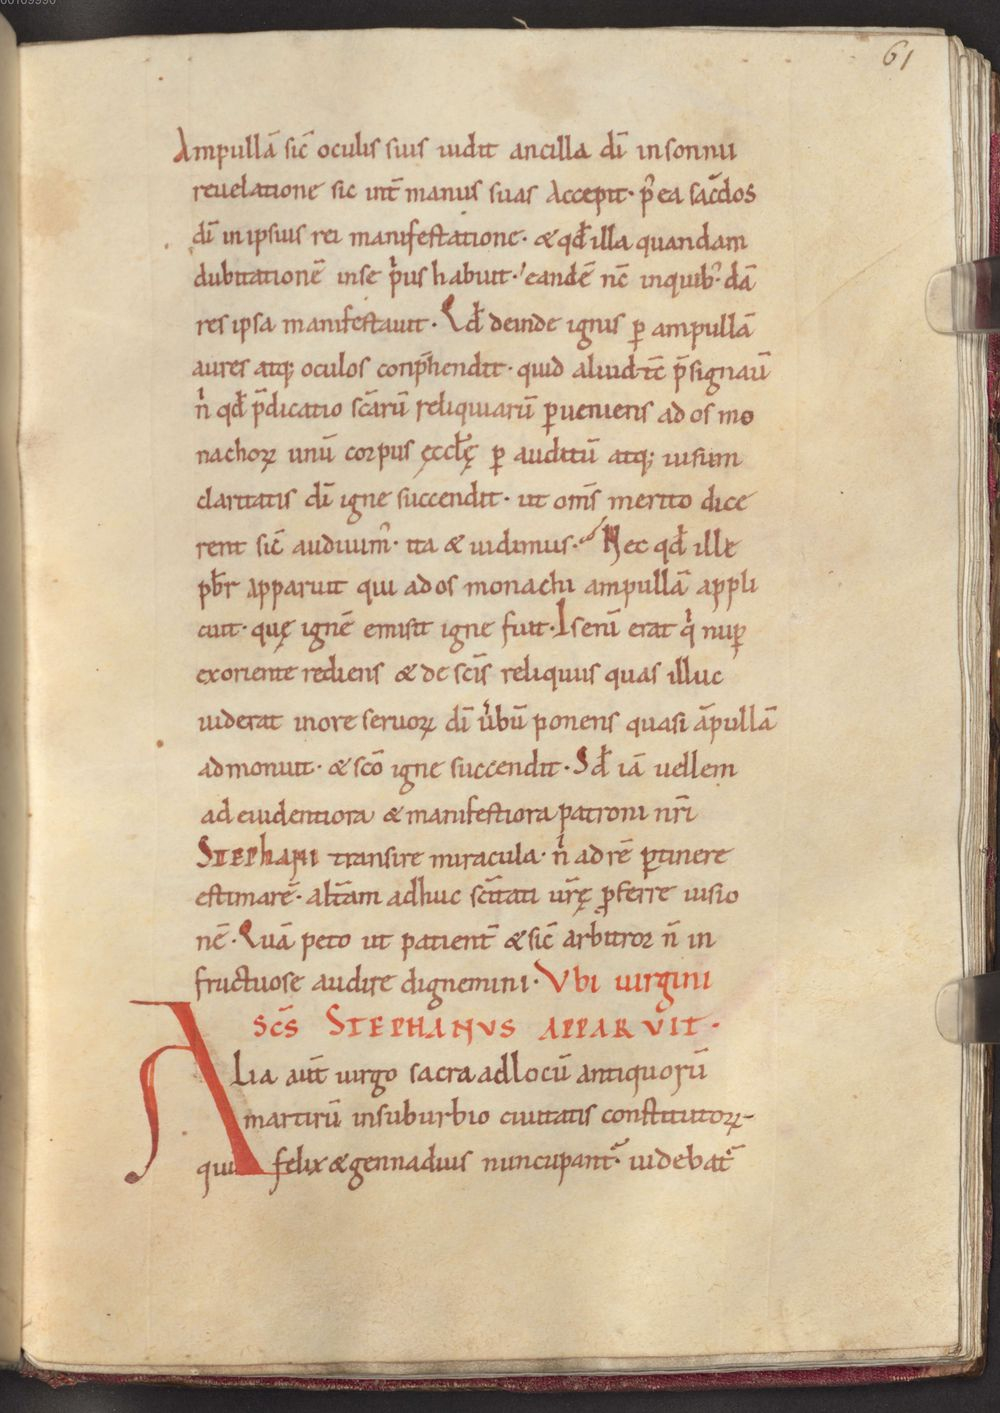 61
Ampullā sic̄ oculis suis uidit ancilla dī insonnu
reuelatione sic int̄ manus suas Accepit · p̾ ea sac̄dos
dī in ipsius rei manifestatione · & qđ illa quandam
dubitationē inse pͥus habuit · eandē nc̄ inquib᾽ · dā
res ipsa manifestauit · Qđ deinde ignis ꝑ ampullā
aures atq; oculos conp̄hendit · quid aliud · tc̄ p̄signauī
ñ qđ p̄dicatio scārū reliquiarū ꝑueniens ad os mo
nachoꝝ unū corpus ęcclę̄ ꝑ auditū atq; uisum
claritatis dī igne succendit · ut om̄s merito dice
rent sic̄ audiuim᾽ · ita & uidimus · Nec qđ ille
pb̄r apparuit qui ad os monachi ampullā appli
cuit · quę ignē emisit igne fuit · Is enī erat qͥ nuꝑ
exoriente rediens & de scīs reliquiis quas illuc
uiderat inore seruoꝝ dī ūbū ponens quasi āpullā
admonuit · & scō igne succendit · Sđ iā uellem
ad euidentiora & manifestiora patroni nr̄i
STEPhANI transire miracula · nͥ ad rē ꝑtinere
estimarē · alt̄am adhuc sc̄itati ur̄ę ꝓferre uisio
nē · Quā peto ut patient̄ & sic̄ arbitror n̄ in
fructuose audire dignemini · Vbi uirgini
SCS̄ STEPHANVS APPARVIT ·
ALia aut̄ uirgo sacra ad locū antiquorū
martirū insuburbio ciuitatis constitutoꝝ
qui felix & gennadius nuncupant᾽ · uidebat᾽